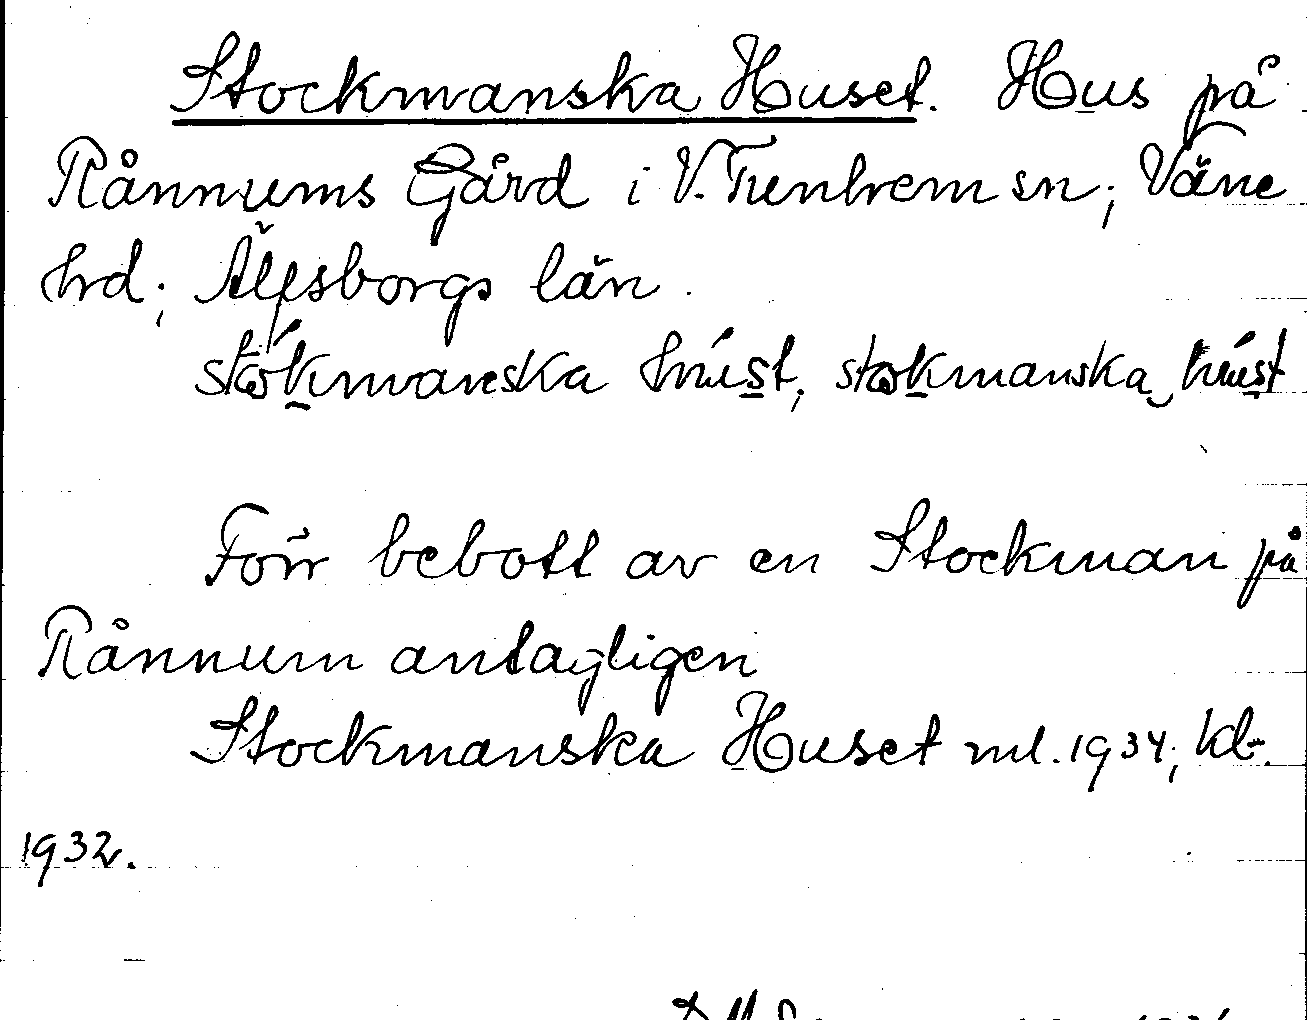 Stockmanska Huset. Hus på
Rånnums Gård i V. Tunhem sn; Väne
hrd; Älfsborgs län.
stókmanska húst; stokmanska húst
Förr bebott av en Stockman på
Rånnum antagligen
Stockmanska Huset ml. 1934; kbr.
1932.